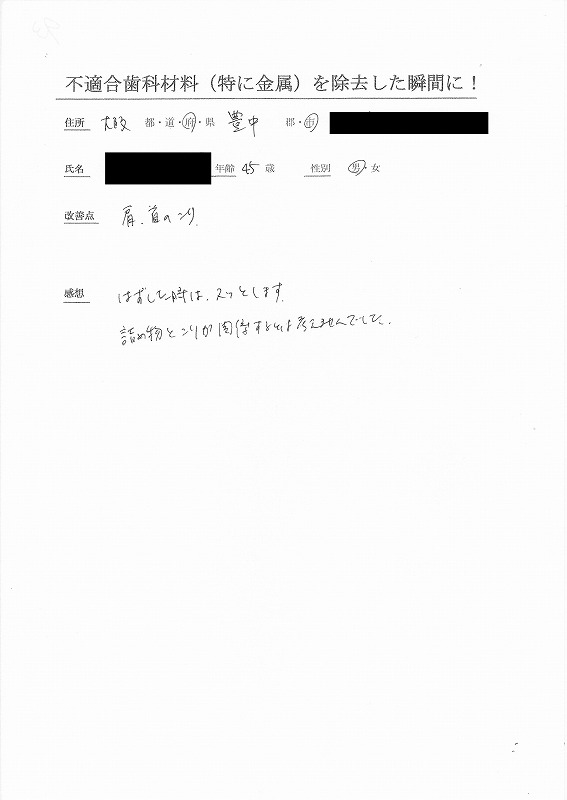 不適合歯科材料（特に金属）を除去した瞬間に！
住所 大阪 都・道・府・県 豊中 郡・市
氏名 年齢 45 歳 性別 男・女
改善点 肩、首のこり、
感想 はずした時は、スッとします。
詰め物とこりが関係するとは考えませんでした。